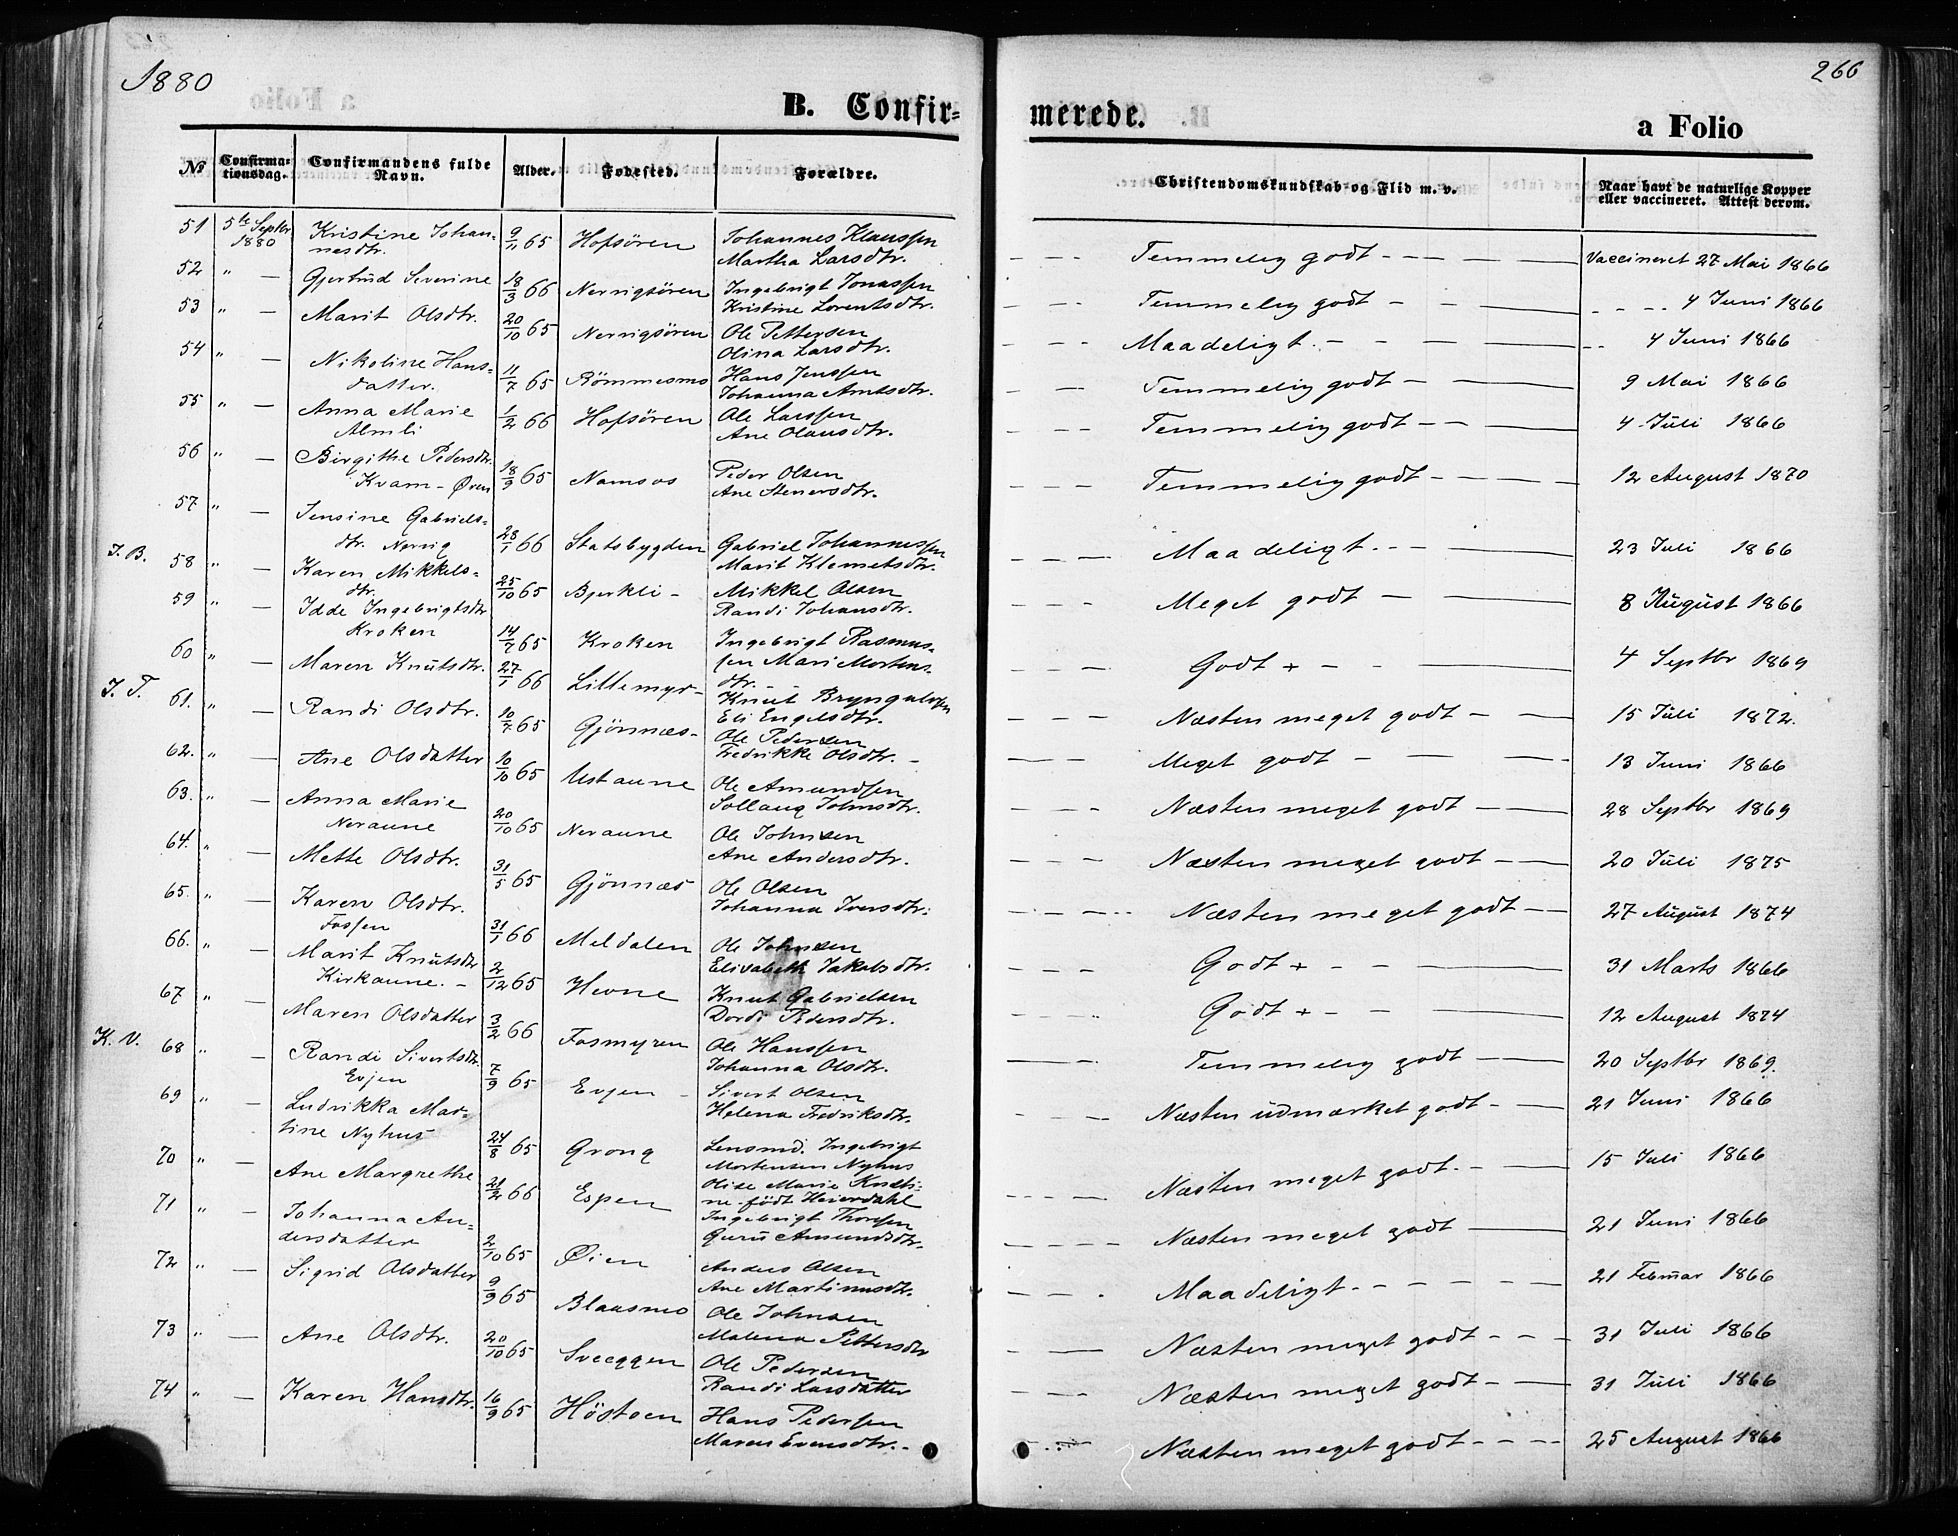 1880
266
B. Confir-
merede.
a Folio
No
Confirma-
tionsdag.
Confirmandens fulde
Navn.
Alder.
Fødested.
Forældre.
Christendomskundskab og Flid m. v.
Naar havt de naturlige Kopper
eller vaccineret. Attest derom.
51 5te Septbr 1880 Kristine Johan-
nesdtr. 9/11 65 Hofsören Johannes Klaussen
Martha Larsdtr. - - - Temmelig godt - - - — Vaccineret 27 Mai 1866
52 " — Gjertrud Severine 18/3 66 Nervigsören Ingebrigt Jonassen
Kristine Lorentsdtr. - - - Temmelig godt - - — - - - - 4 Juni 1866
53 " — Marit Olsdtr. 20/10 65 Nervigsören Ole Pettersen
Olina Larsdtr. - - - Maadeligt. - - - — - - 4 Juni 1866
54 " — Nikoline Hans-
datter. 11/7 65 Römmesmo Hans Jenssen
Johanna Arntsdtr. - - Temmelig godt - — 9 Mai 1866
55 " — Anna Marie
Almli 1/2 66 Hofsören Ole Larssen
Ane Olausdtr. - - - Temmelig godt - - — 4 Juli 1866
56 " — Birgithe Pedersdtr.
Kvam - Øren 18/9 65 Namsos Peder Olsen
Ane Stenersdtr. - - - Temmelig godt - - — 12 August 1870
57 " — Jensine Gabriels-
dtr. Nervig 23/1 66 Statsbygden Gabriel Johannessen
Marit Klemetsdtr. - - — Maadeligt. - - — 23 Juli 1866
I. B. 58 " — Karen Mikkels-
dtr. 25/10 65 Bjerkli - Mikkel Olsen
Randi Johansdtr. - - - Meget godt - — 8 August 1866
59 " — Idde Ingebrigtsdtr
Kroken 14/7 65 Kroken Ingebrigt Rasmus-
sen Mari Mortens-
dtr. - - - — Godt + - - — 4 Septbr 1869
60 " — Maren Knutsdtr. 27/1 66 Lillemyr - Knut Bryngelsen
Eli Engelsdtr. - - - Næsten meget godt - — 15 Juli 1872.
I. T. 61. " — Randi Olsdtr. 10/7 65 Gjönnæs - Ole Pedersen
Fredrikke Olsdtr. - — - - Meget godt - - — 13 Juni 1866
62. " — Ane Olsdatter 10/10 65 Ustaune Ole Amundsen
Sollaug Johnsdtr. - - - Næsten meget godt - — 28 Septbr 1869
63. " — Anna Marie
Neraune 20/10 65 Neraune Ole Johnsen
Ane Andersdtr. - - - Næsten meget godt - — 20 Juli 1875
64. " — Mette Olsdtr. 31/5 65 Gjönnæs Ole Olsen
Johanna Iversdtr. - - - Næsten meget godt - - 27 August 1874
65. " — Karen Olsdtr.
Fossen 31/1 66 Meldalen Ole Johnsen
Elisabeth Jakobsdtr. - - - Godt + - - — 31 Marts 1866
66. " — Marit Knutsdtr
Kirkaune. - 2/12 65 Hevne Knut Gabrielsen
Dordi Pedersdtr. - - - Godt + - - — 12 August 1874
67 " — Maren Olsdatter 3/2 66 Fosmyren Ole Hanssen
Johanna Olsdtr. — - - Temmelig godt — 20 Septbr 1869.
K. V. 68 " — Randi Sivertsdtr.
Evjen 7/9 65 Evjen - Sivert Olsen
Helena Fredriksdtr. - - - Næsten udmærket godt - — 21 Juni 1866
69 " — Ludvikka Mar-
tine Nyhus 24/8 65 Grong Lensmd. Ingebrigt
Mortensen Nyhus
Olise Marie
født Heierdahl - - - Næsten meget godt. - — 15 Juli 1866
70 " — Ane Margrethe 21/2 66 Espen Ingebrigt Thoresen
Guru Amundsdtr. - - - - Næsten meget godt — 21 Juni 1866
71 " — Johanna An-
dersdatter 2/10 65 Øien Anders Olsen
Ane Martinusdtr. - - - Maadeligt. - - - - 21 Februar 1866
72 " — Sigrid Olsdatter 9/9 65 Blaasmo Ole Johnsen
Malena Pettersdtr - — Næsten meget godt - - - 31 Juli 1866
73 " — Ane Olsdtr. 20/10 65 Sveeggen Ole Pedersen
Randi Larsdatter - - - Næsten meget godt - — 31 Juli 1866
74 " — Karen Hansdtr. 16/9 65 Höstoen Hans Pedersen
Maren Evensdtr. - - - - Næsten meget godt - - - - 25 August 1866